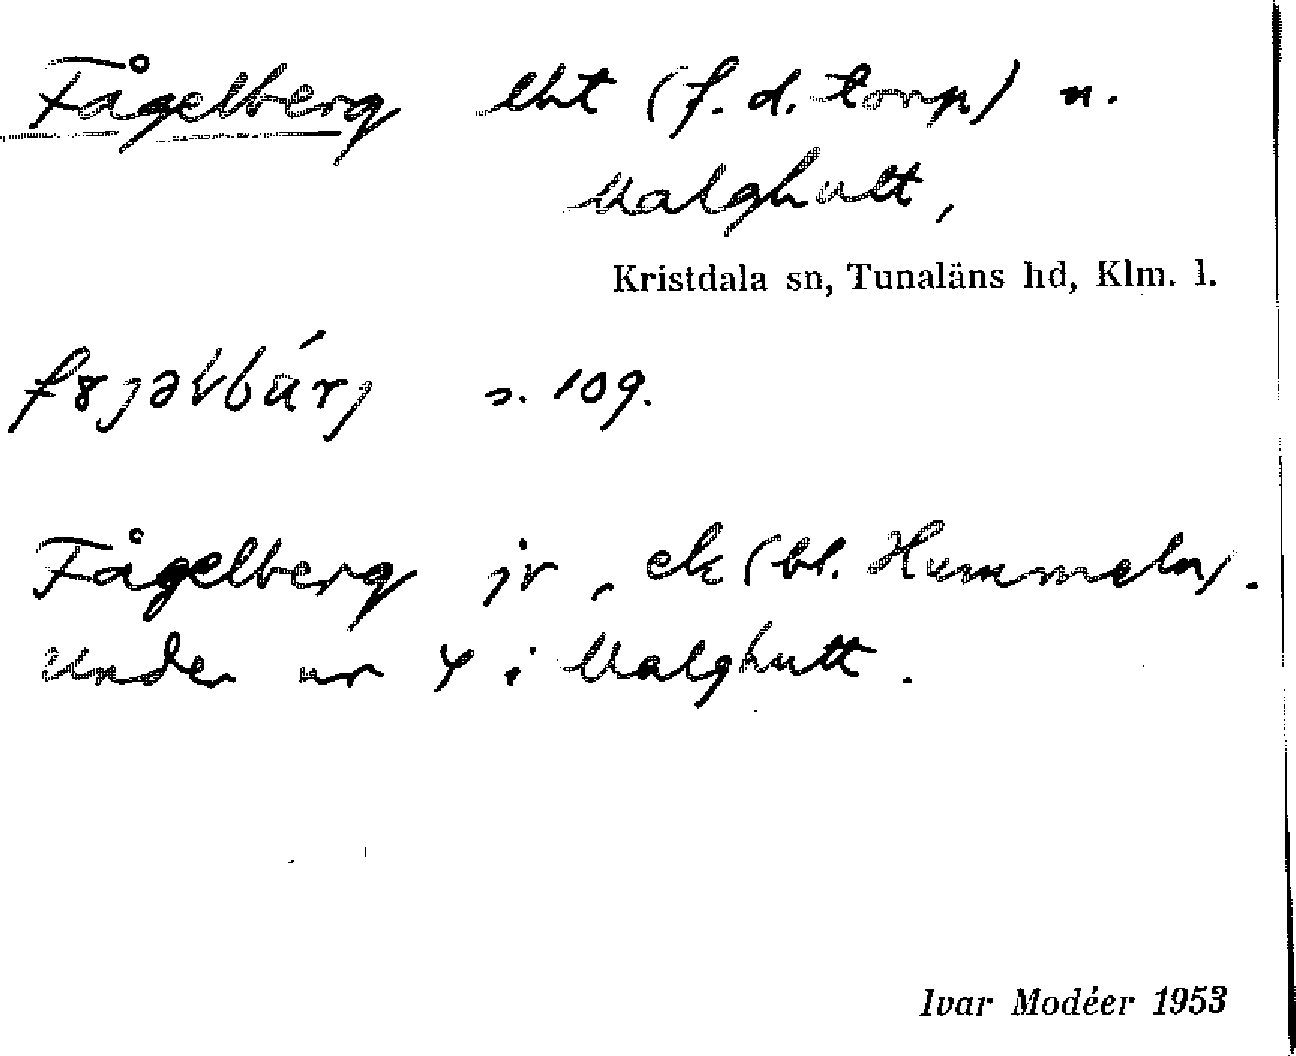 Fågelberg lht (f.d. torp) u.
Malghult,
Kristdala sn, Tunaläns hd, Klm. l.
s. 109.
Fågelberg jr, ek (bl. Hummeln).
Under nr 4 i Malghult.
Ivar Modéer 1953